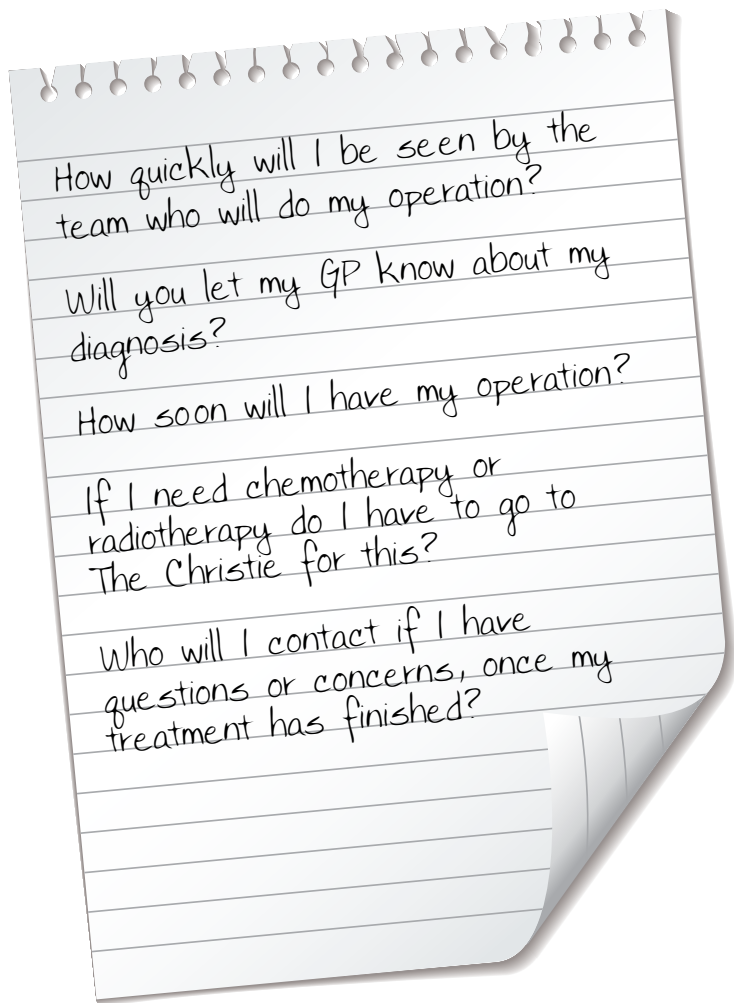 How quickly will I be seen by the
team who will do my operation?
Will you let my GP know about my
diagnosis?
How soon will I have my operation?
If I need chemotherapy or
radiotherapy do I have to go to
The Christie for this?
Who will I contact if I have
questions or concerns, once my
treatment has finished?